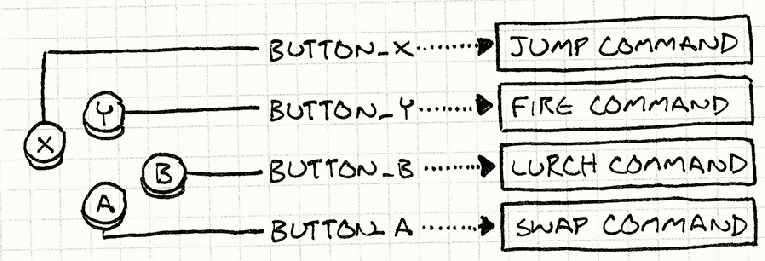 BUTTON_X JUMP COMMAND
Y BUTTON_Y FIRE COMMAND
X
B BUTTON_B LURCH COMMAND
A BUTTON_A SWAP COMMAND